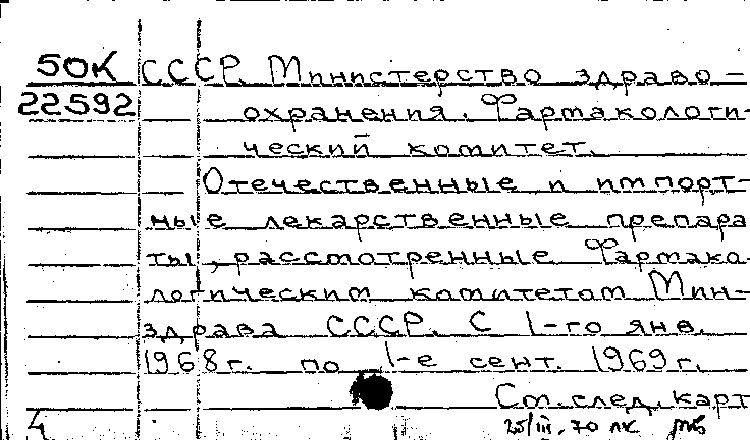 50К СССР. Министерство здраво-
22592 охранения. Фармакологи-
ческий комитет.
Отечественные и импорт-
ные лекарственные препара
ты, рассмотренные Фармако-
логическим комитетом Мин-
здрава СССР. С 1-го янв.
1968г. по 1-е сент. 1969г.
См. след. карт
4 25/III-70